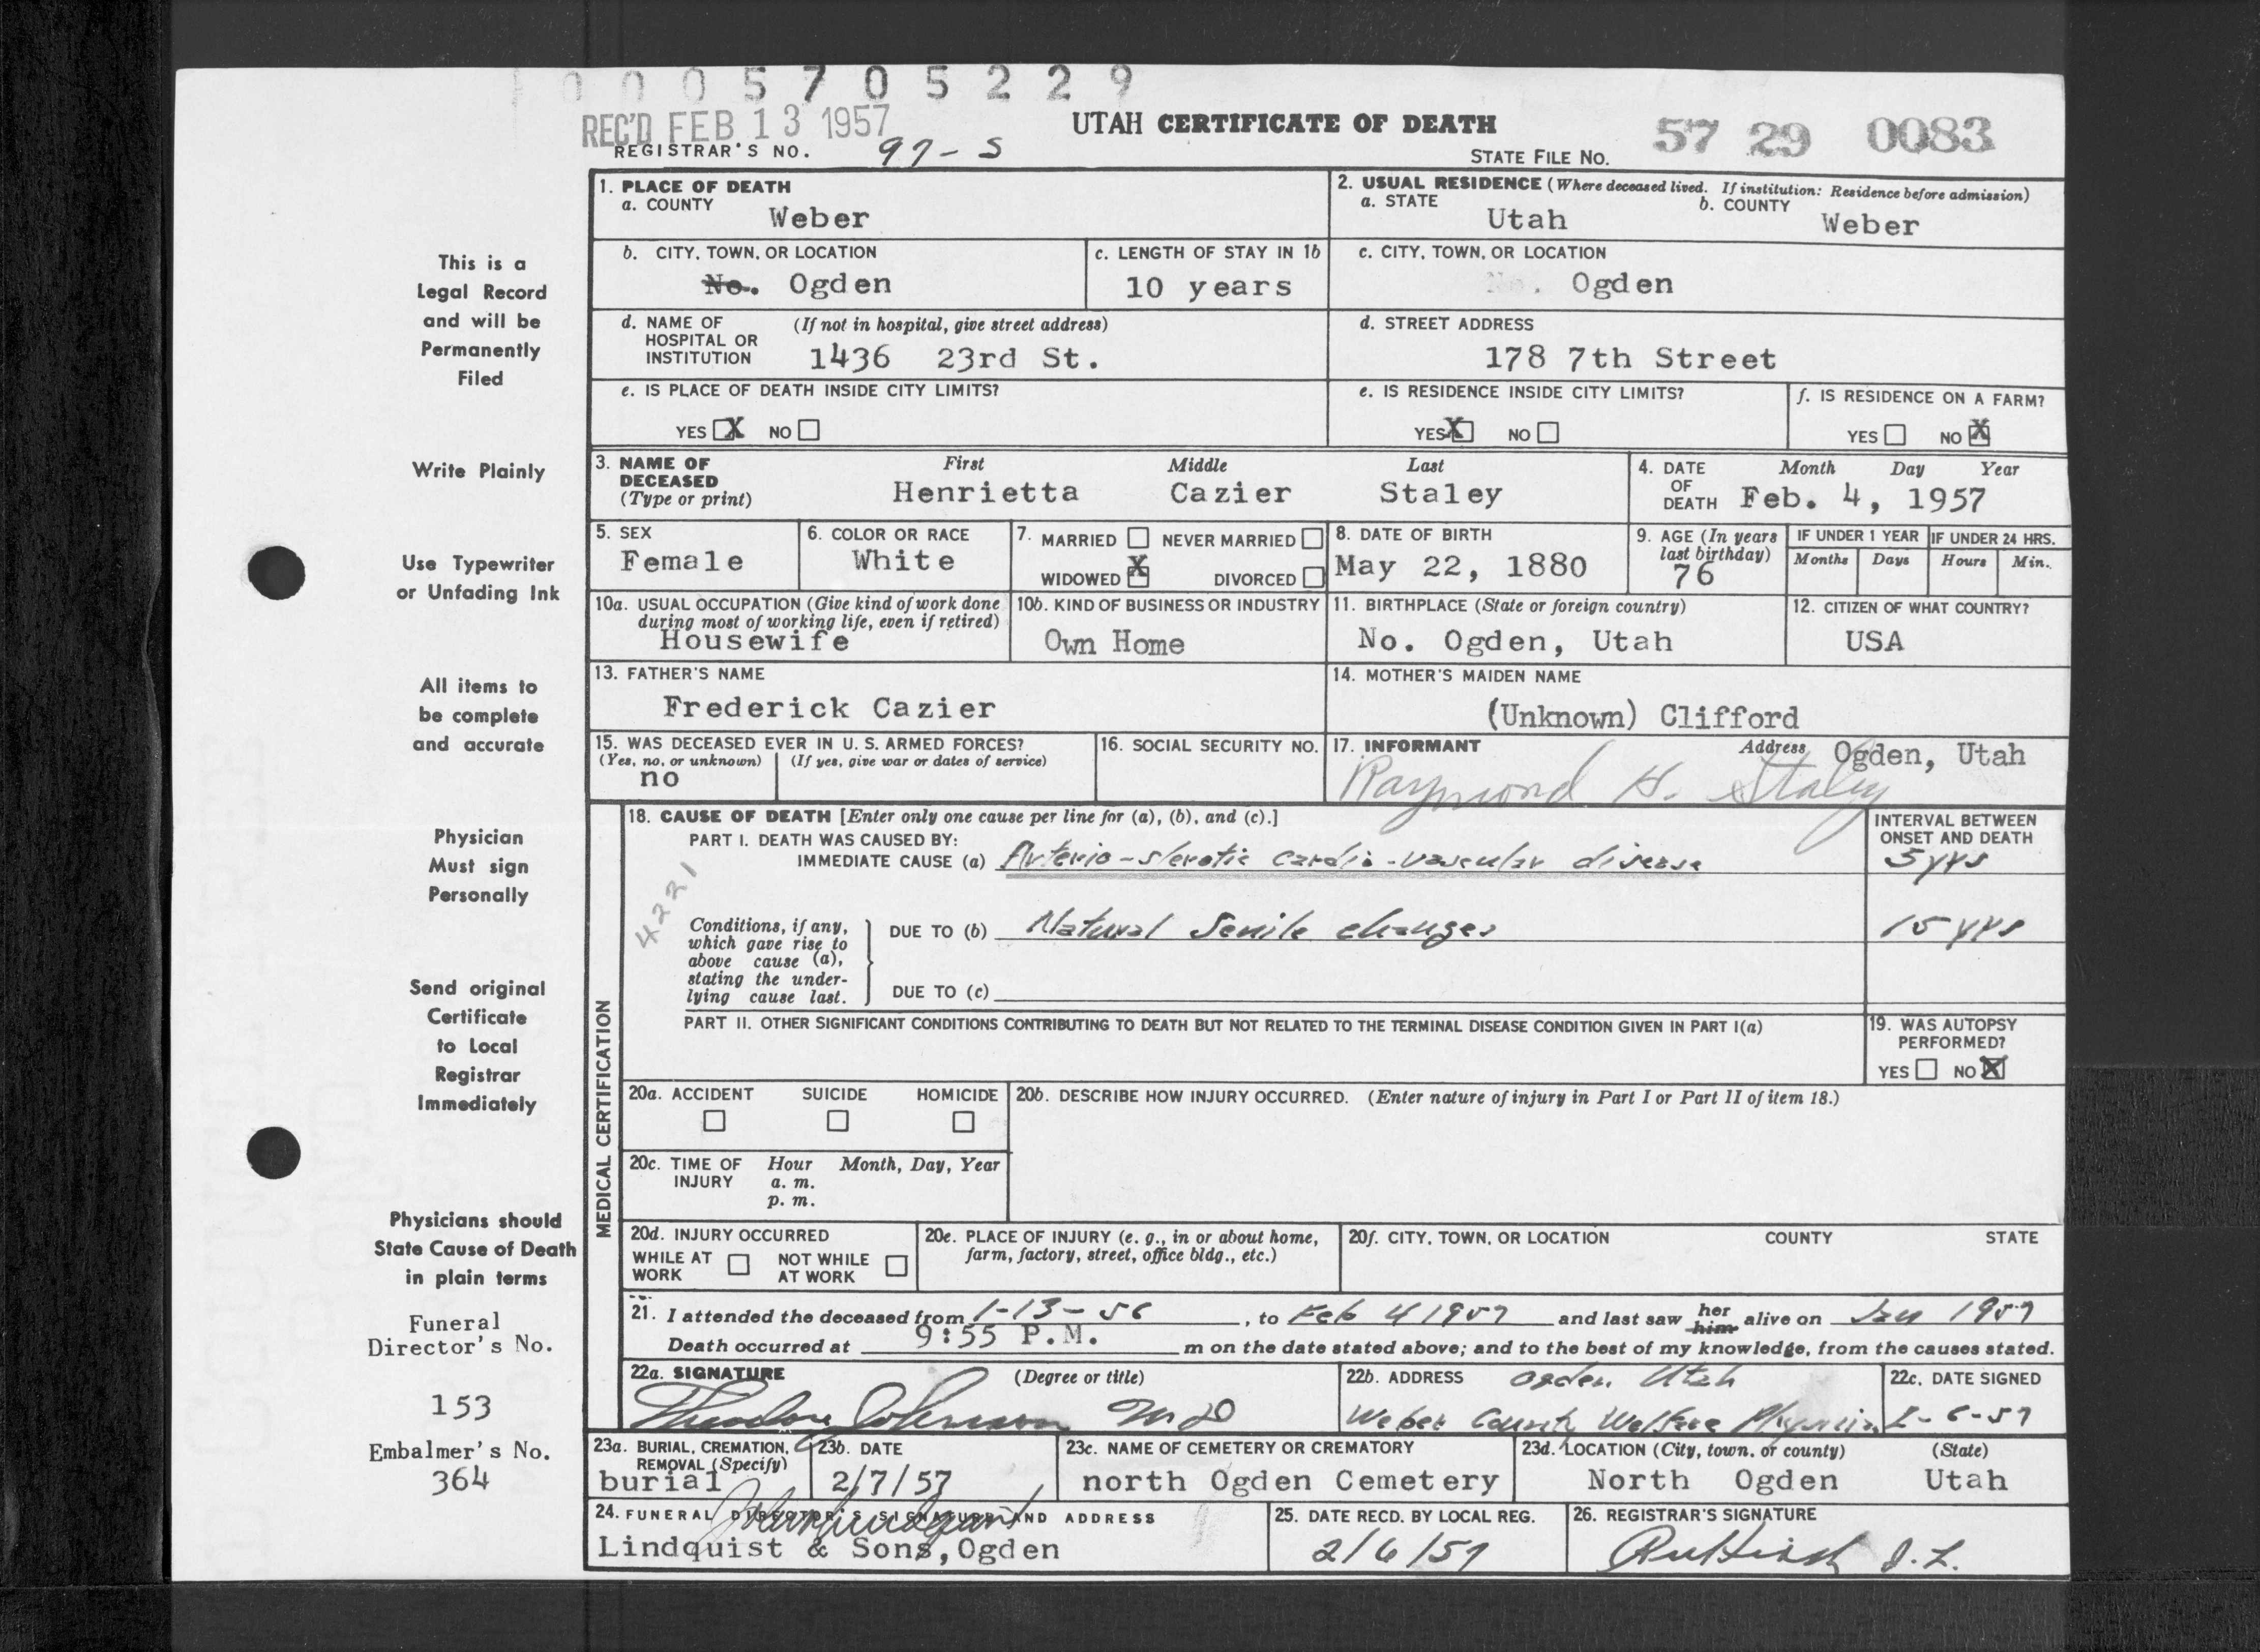 0005705229
REC'D FEB 13 1957
UTAH CERTIFICATE OF DEATH
57 29 0083
REGISTRAR'S NO. 97-S
STATE FILE NO.
1. PLACE OF DEATH
a. COUNTY
Weber
2. USUAL RESIDENCE (Where deceased lived. If institution: Residence before admission)
a. STATE
Utah
b. COUNTY
Weber
b. CITY, TOWN, OR LOCATION
No. Ogden
c. LENGTH OF STAY IN 1b
10 years
c. CITY, TOWN, OR LOCATION
No. Ogden
d. NAME OF HOSPITAL OR INSTITUTION
(If not in hospital, give street address)
1436 23rd St.
d. STREET ADDRESS
178 7th Street
e. IS PLACE OF DEATH INSIDE CITY LIMITS?
YES X NO
e. IS RESIDENCE INSIDE CITY LIMITS?
YES X NO
f. IS RESIDENCE ON A FARM?
YES NO X
3. NAME OF DECEASED
(Type or print)
First Middle Last
Henrietta Cazier Staley
4. DATE OF DEATH
Month Day Year
Feb. 4, 1957
5. SEX
Female
6. COLOR OR RACE
White
7. MARRIED NEVER MARRIED
WIDOWED X DIVORCED
8. DATE OF BIRTH
May 22, 1880
9. AGE (In years last birthday)
76
IF UNDER 1 YEAR
Months Days
IF UNDER 24 HRS.
Hours Min.
10a. USUAL OCCUPATION (Give kind of work done during most of working life, even if retired)
Housewife
10b. KIND OF BUSINESS OR INDUSTRY
Own Home
11. BIRTHPLACE (State or foreign country)
No. Ogden, Utah
12. CITIZEN OF WHAT COUNTRY?
USA
13. FATHER'S NAME
Frederick Cazier
14. MOTHER'S MAIDEN NAME
(Unknown) Clifford
15. WAS DECEASED EVER IN U. S. ARMED FORCES?
(Yes, no, or unknown) (If yes, give war or dates of service)
no
16. SOCIAL SECURITY NO.
17. INFORMANT Address
Ogden, Utah
Raymond H. Staley
MEDICAL CERTIFICATION
18. CAUSE OF DEATH [Enter only one cause per line for (a), (b), and (c).]
PART I. DEATH WAS CAUSED BY:
IMMEDIATE CAUSE (a) Arterio-slerotic cardio-vascular disease
INTERVAL BETWEEN ONSET AND DEATH
5 yrs
4221
Conditions, if any,
which gave rise to
above cause (a),
stating the under-
lying cause last.
DUE TO (b) Natural Senile changes
15 yrs
DUE TO (c)
PART II. OTHER SIGNIFICANT CONDITIONS CONTRIBUTING TO DEATH BUT NOT RELATED TO THE TERMINAL DISEASE CONDITION GIVEN IN PART I(a)
19. WAS AUTOPSY PERFORMED?
YES NO X
20a. ACCIDENT SUICIDE HOMICIDE
20b. DESCRIBE HOW INJURY OCCURRED. (Enter nature of injury in Part I or Part II of item 18.)
20c. TIME OF INJURY
Hour Month, Day, Year
a. m.
p. m.
20d. INJURY OCCURRED
WHILE AT WORK NOT WHILE AT WORK
20e. PLACE OF INJURY (e. g., in or about home, farm, factory, street, office bldg., etc.)
20f. CITY, TOWN, OR LOCATION COUNTY STATE
21. I attended the deceased from 1-13-56, to Feb 4 1957 and last saw her him alive on Jan 1957
Death occurred at 9:55 P.M. m on the date stated above; and to the best of my knowledge, from the causes stated.
22a. SIGNATURE (Degree or title)
Theodore Johnson MD
22b. ADDRESS
Ogden Utah
Weber County Welfare Physician
22c. DATE SIGNED
2-6-57
23a. BURIAL, CREMATION, REMOVAL (Specify)
burial
23b. DATE
2/7/57
23c. NAME OF CEMETERY OR CREMATORY
north Ogden Cemetery
23d. LOCATION (City, town, or county) (State)
North Ogden Utah
24. FUNERAL DIRECTOR'S SIGNATURE AND ADDRESS
Lindquist & Sons, Ogden
25. DATE RECD. BY LOCAL REG.
2/6/57
26. REGISTRAR'S SIGNATURE
This is a
Legal Record
and will be
Permanently
Filed
Write Plainly
Use Typewriter
or Unfading Ink
All items to
be complete
and accurate
Physician
Must sign
Personally
Send original
Certificate
to Local
Registrar
Immediately
Physicians should
State Cause of Death
in plain terms
Funeral
Director's No.
153
Embalmer's No.
364